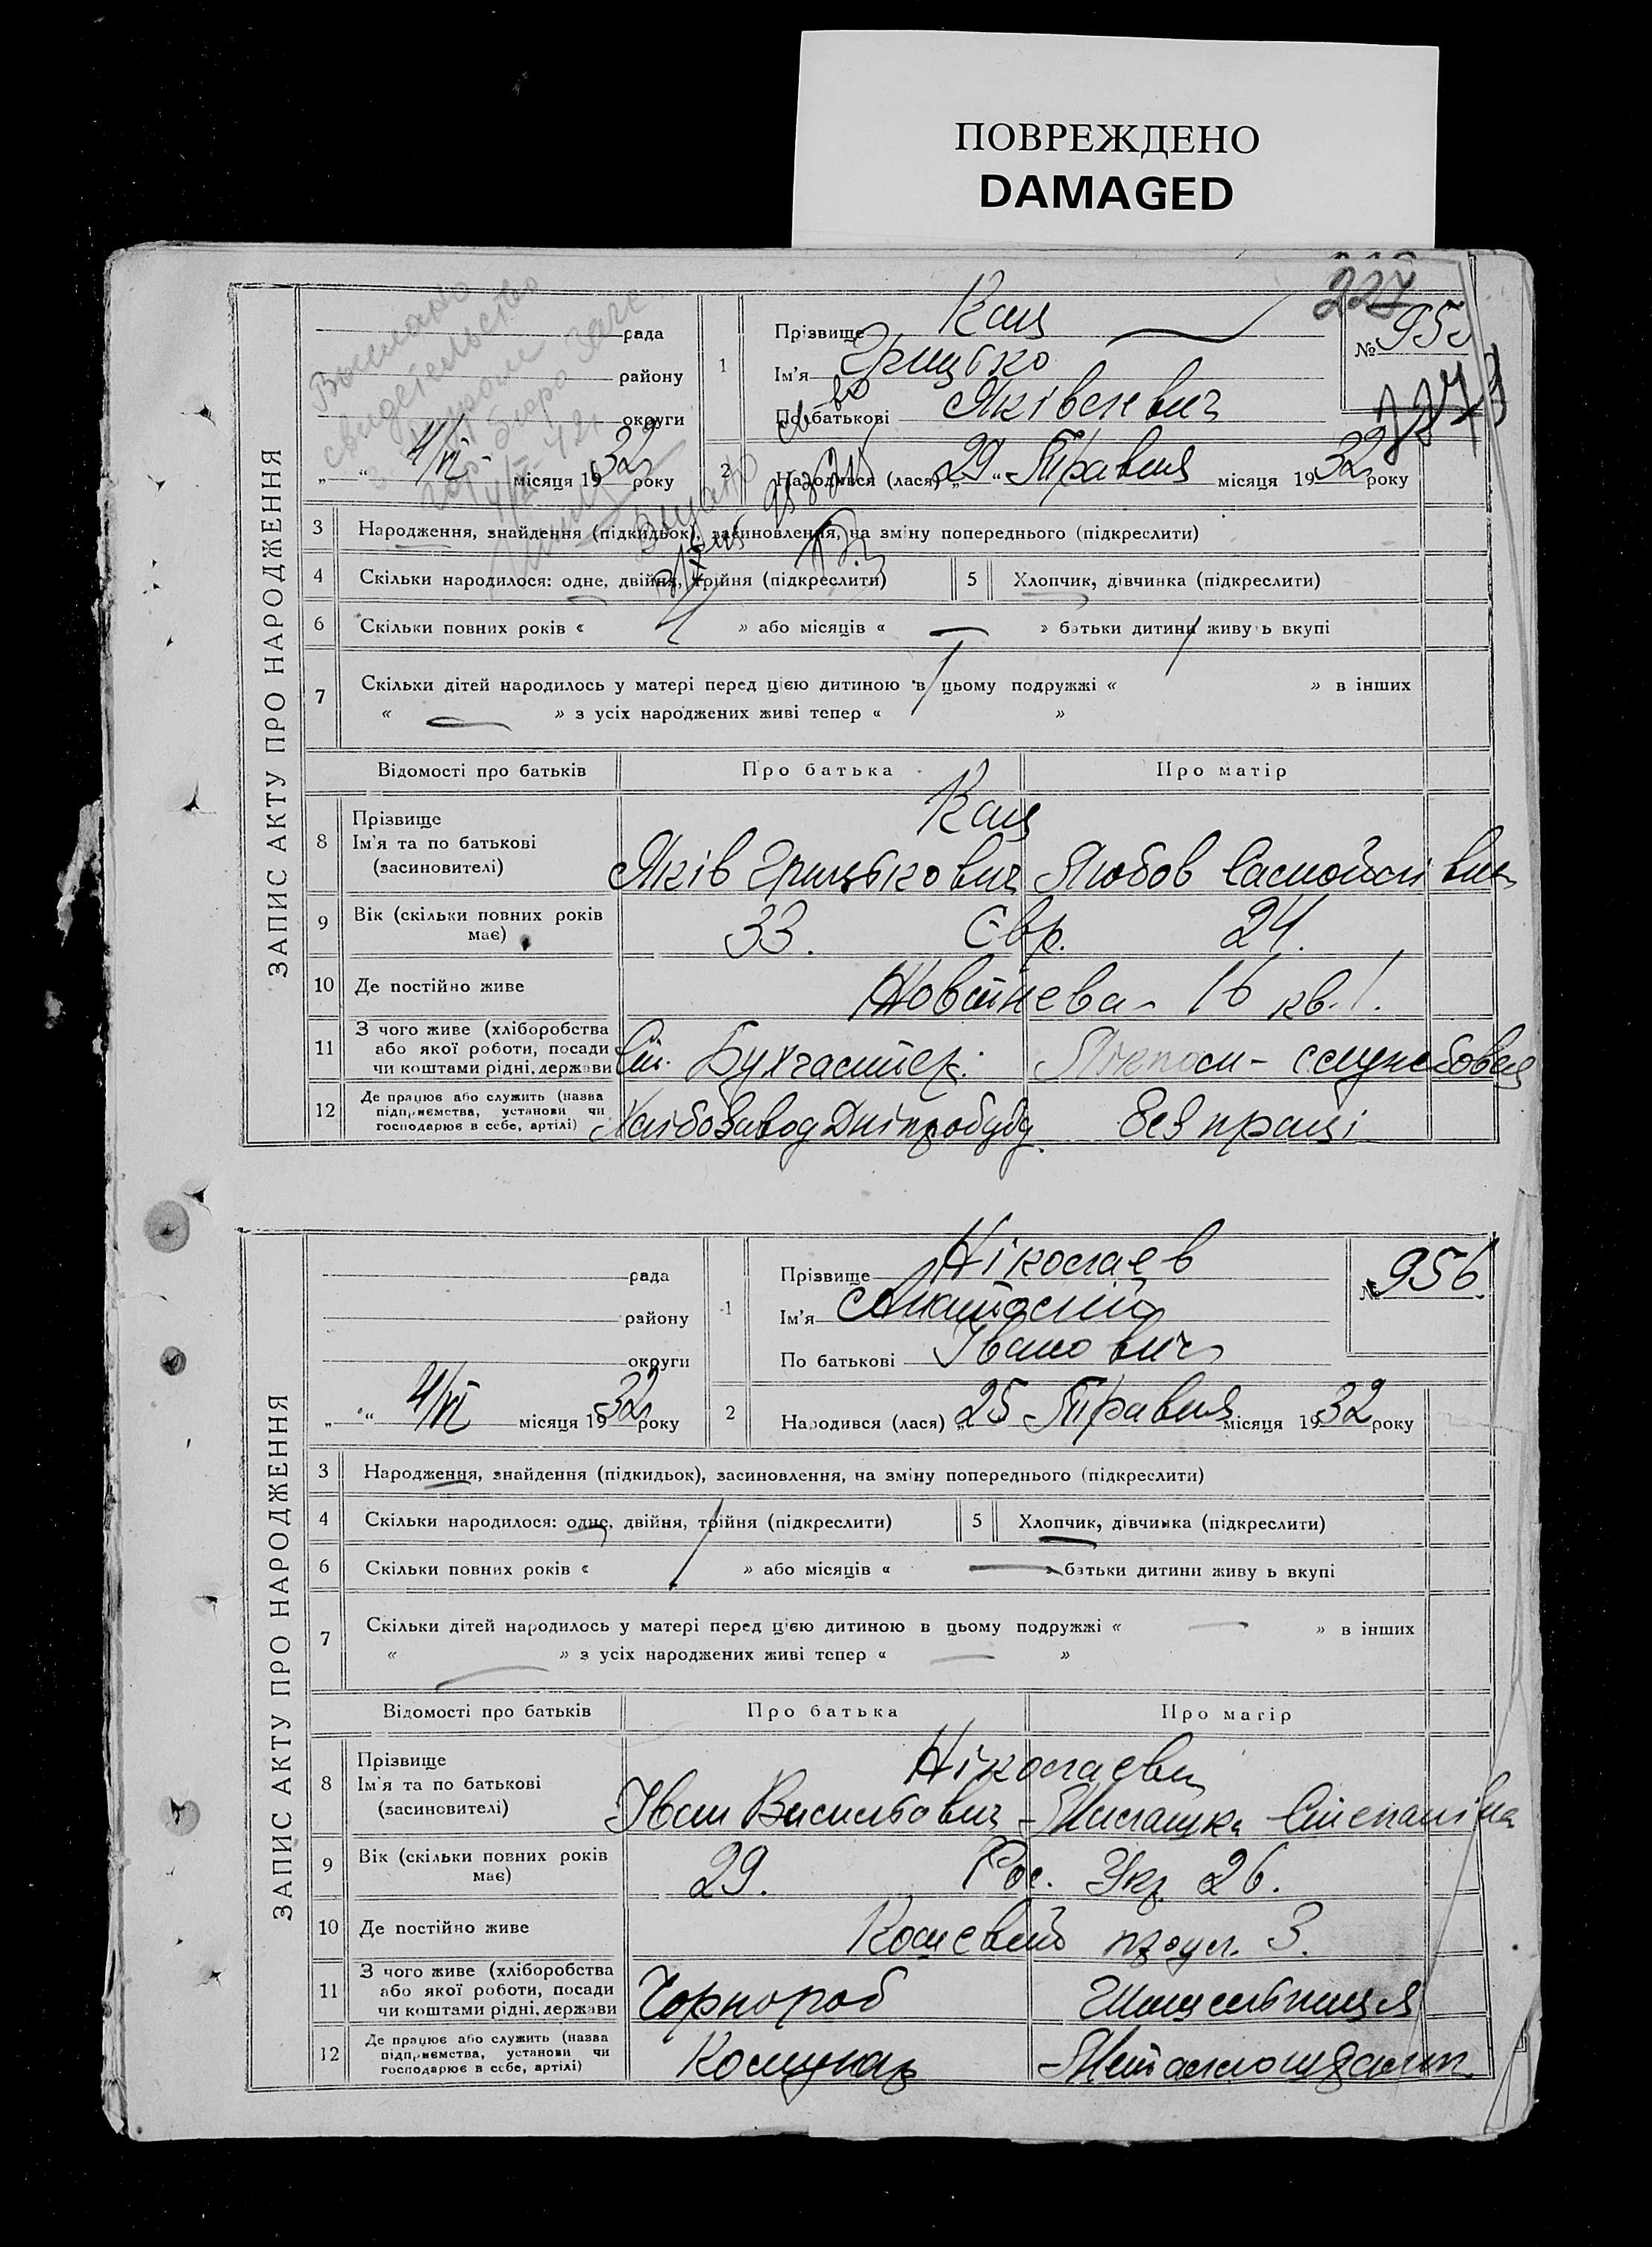 ПОВРЕЖДЕНО
DAMAGED
227
ЗАПИС АКТУ ПРО НАРОДЖЕННЯ
рада
району
округи
4/VI місяця 1932 року
1
Прізвище Кац
Ім'я Грицько
По батькові Яківлевич
№ 955
2 Народився (лася) „29“ Травня місяця 1932 року
3 Народження, знайдення (підкидьок), засиновлення, на зміну попереднього (підкреслити)
4 Скільки народилося: одне, двійня, трійня (підкреслити) 5 Хлопчик, дівчинка (підкреслити)
6 Скільки повних років « 4 » або місяців « — » батьки дитини живуть вкупі
7 Скільки дітей народилось у матері перед цією дитиною в цьому подружжі « 1 » в інших
« — » з усіх народжених живі тепер « 1 »
Відомості про батьків Про батька Про матір
8 Прізвище
Ім'я та по батькові
(засиновителі)
Кац
Яків Грицькович Любов
9 Вік (скільки повних років має) 33. Євр. 24.
10 Де постійно живе 16 кв. 1.
11 З чого живе (хліборобства або якої роботи, посади чи коштами рідні, держави Ст. Бухгалтер.
12 Де працює або служить (назва підприємства, установи чи господарює в себе, артілі) Хлібозавод Дніпробуду. Без праці
ЗАПИС АКТУ ПРО НАРОДЖЕННЯ
рада
району
округи
4/VI місяця 1932 року
1
Прізвище Ніколаєв
Ім'я Анатолій
По батькові Іванович
№ 956
2 Народився (лася) „25 Травня місяця 1932 року
3 Народження, знайдення (підкидьок), засиновлення, на зміну попереднього (підкреслити)
4 Скільки народилося: одне, двійня, трійня (підкреслити) 5 Хлопчик, дівчинка (підкреслити)
6 Скільки повних років « 1 » або місяців « — » батьки дитини живуть вкупі
7 Скільки дітей народилось у матері перед цією дитиною в цьому подружжі « — » в інших
« — » з усіх народжених живі тепер « — »
Відомості про батьків Про батька Про матір
8 Прізвище
Ім'я та по батькові
(засиновителі)
Ніколаєви
Іван Васильович Степанівна
9 Вік (скільки повних років має) 29. Рос. Укр. 26.
10 Де постійно живе пров. 3.
11 З чого живе (хліборобства або якої роботи, посади чи коштами рідні, держави Чорнороб
12 Де працює або служить (назва підприємства, установи чи господарює в себе, артілі) Комунар